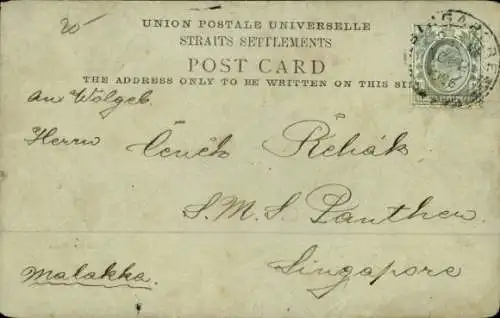 20-
UNION POSTALE UNIVERSELLE
STRAITS SETTLEMENTS
POST CARD
THE ADDRESS ONLY TO BE WRITTEN ON THIS SIDE
SINGAPORE
An Wolgeb.
Herrn Čeněk Řehák
S.M.S. Panther
Singapore
Malakka.